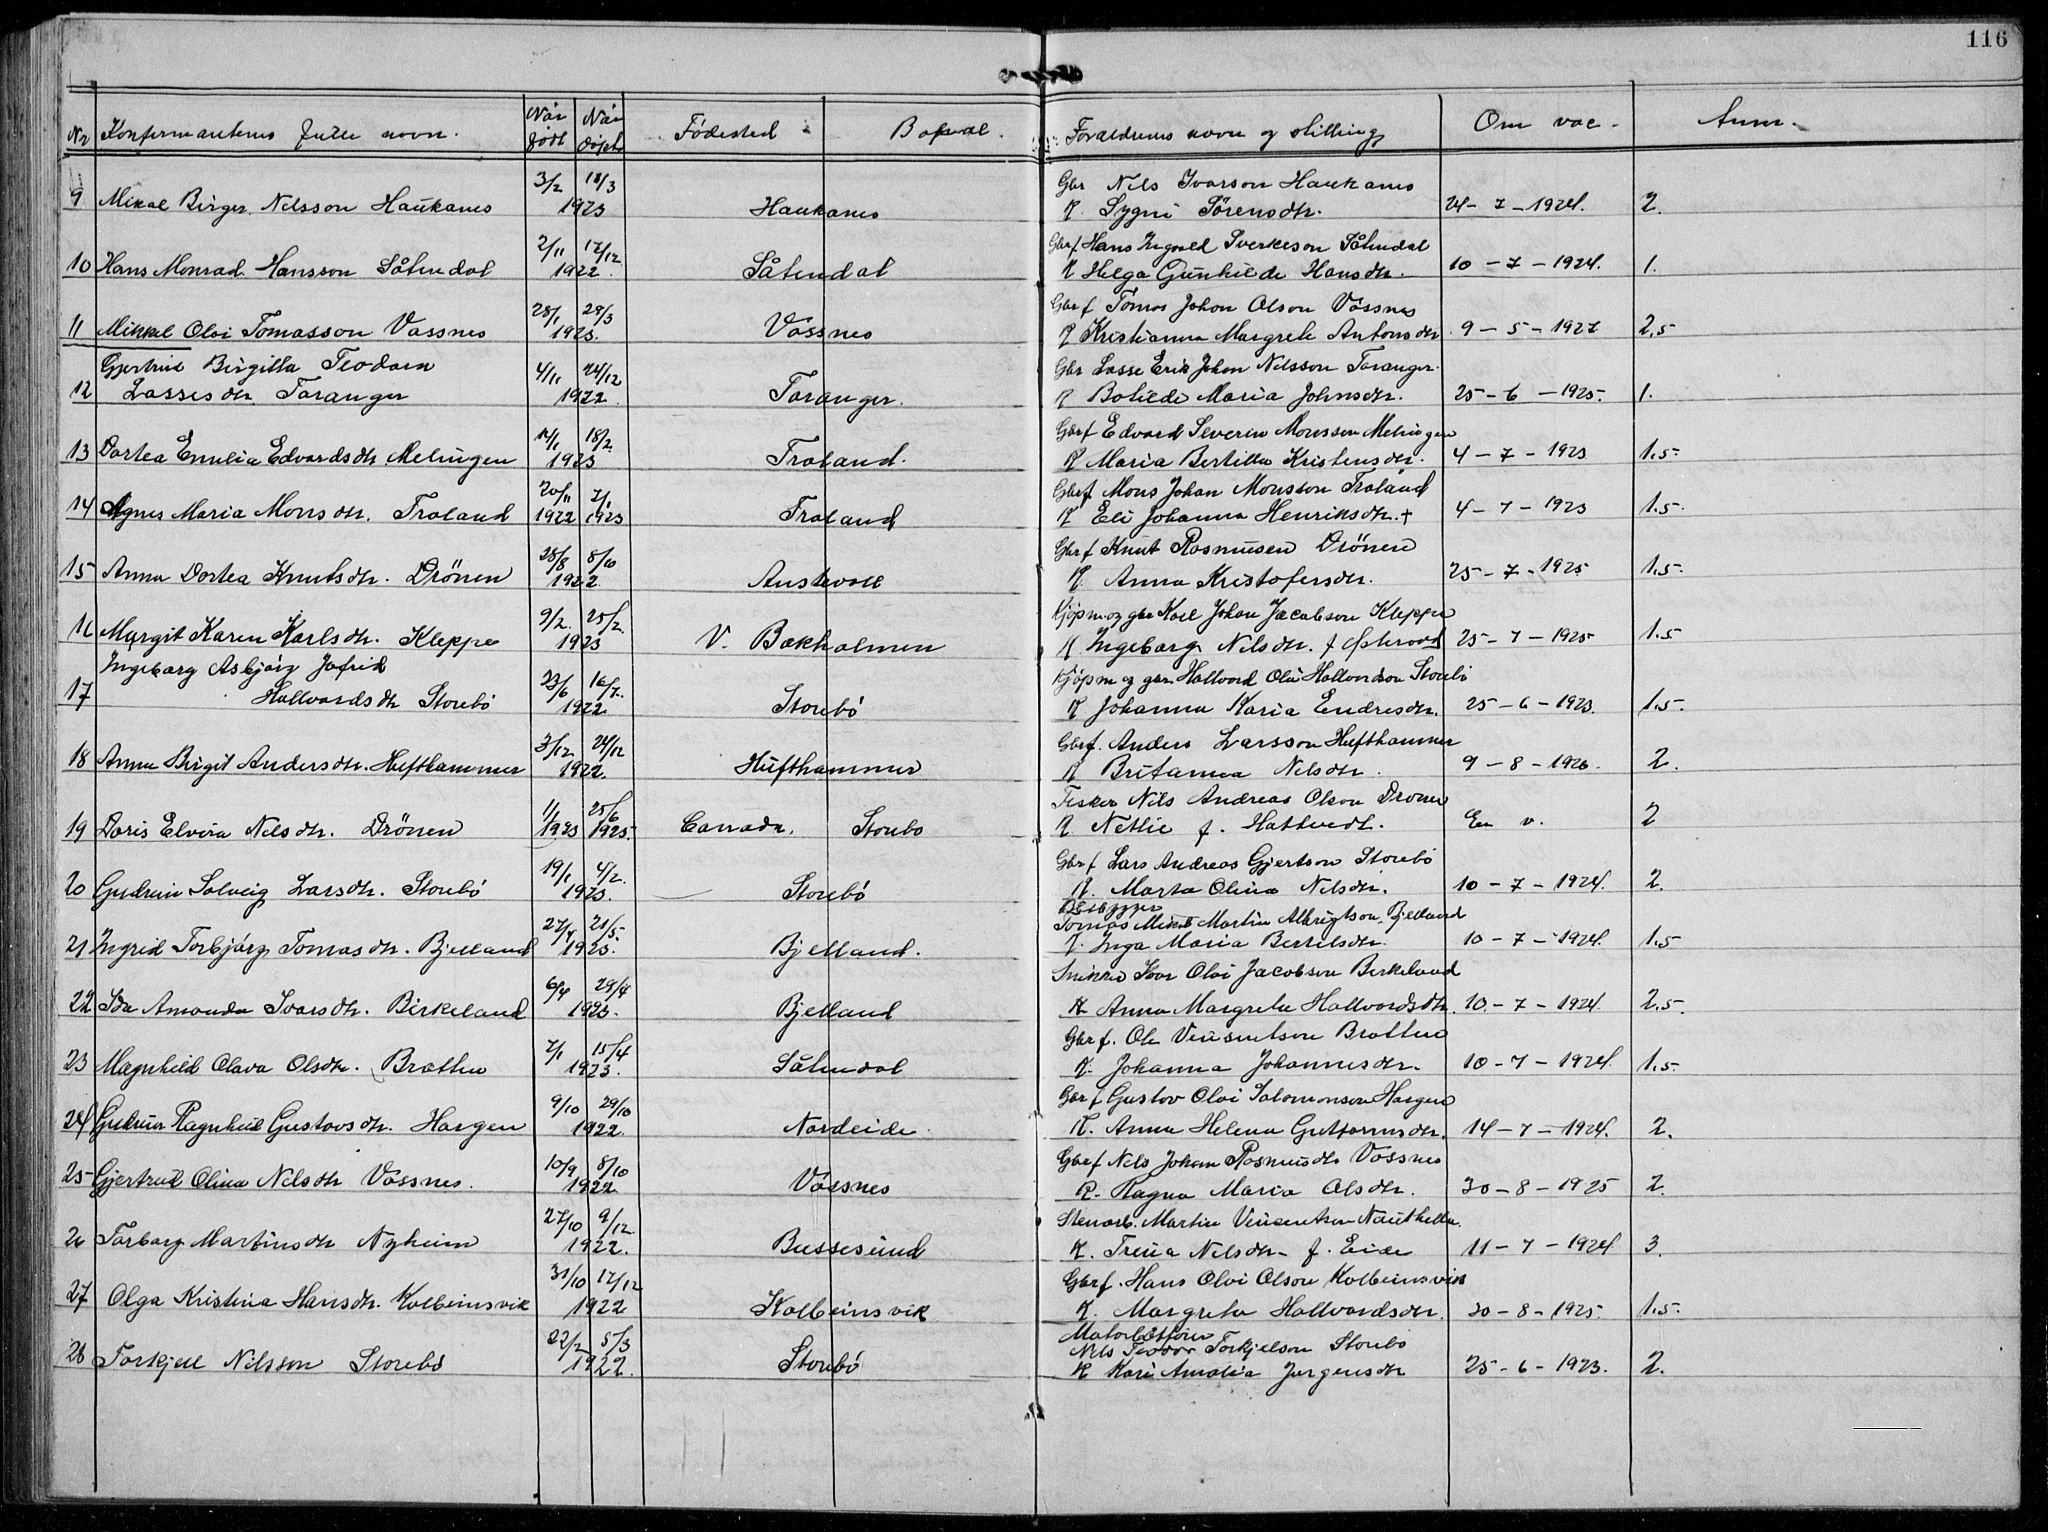 116
Nr Konfirmantens fulle navn. Når født Når døpt Fødested Bopæl. Foraldrenes navn og stilling Om vac. Anm.
9 Mikal Birger Nilsson Haukanes 3/2 18/3 1923 Haukanes Gbr Nils Ivarson Haukanes K. Sygni Sörensdtr. 24-7-1924. 2.
10 Hans Monrad Hansson Såtendal 2/11 17/12 1922. Såtendal Gbrf. Hans Ingvald Sverkeson Såtendal K Helga Gunhilde Hansdtr. 10-7-1924. 1.
11 Mikkel Olai Tomasson Vassnes 28/1 29/3 1923. Vassnes Gbrf Tomas Johan Olson Vassnes K Kristianna Margrete Antonsdtr 9-5-1927 2,5
Gjertrud Birgitta Teodora
12 Lassesdtr Taranger 4/11 24/12 1922. Taranger. Gbr Lasse Erik Johan Nilsson Taranger. K Botilde Maria Johnsdtr. 25-6-1925. 1.
13 Dortea Emilia Edvardsdtr Melingen 14/1 18/2 1923 Troland. Gbrf Edvard Severin Monssen Melingen K Maria Bertilla Kristensdtr. 4-7-1923 1.5
14 Agnes Maria Monsdtr. Troland 20/11 1922 7/1 1923 Troland Gbrf. Mons Johan Monsson Troland K Eli Johanna Henriksdtr. + 4-7-1923 1.5.
15 Anna Dortea Knutsdtr. Drönen 28/8 8/10 1922. Austevoll Gbrf Knut Rasmusen Drönen K. Anna Kristofersdtr. 25-7-1925 1.5.
16 Margit Karen Karlsdtr. Kleppe 9/2. 25/2. 1923 V. Bakholmen Kjöpm og gbr Karl Johan Jacobson Kleppe K. Ingeborg Nilsdtr. f Östervold 25-7-1925 1.5
Ingeborg Asbjörg Jofrid
17 Hallvardsdtr Storebö 23/6 16/7. 1922 Storebö Kjöpm og gbr. Hallvard Olai Hallvardson Storebö K Johanna Karia Endresdtr. 25-6-1923. 1.5.
18 Anna Birgit Andersdtr. Hufthammer 3/12 24/12 1922. Hufthammer Gbrf. Anders Larsson Hufthammer K Britanna Nilsdtr. 9-8-1926. 2.
19 Doris Elvira Nilsdtr. Drönen 1/1 1923 25/6 1925. Canada. Storebö Fisker Nils Andreas Olson Dronen K Nettie f. Hattvedt. Ei v. 2
20 Gudrun Solveig Larsdtr. Storebö 19/1 4/2. 1923. Storebö Gbrf Lars Andreas Gjertson Storebö K. Marta Olina Nilsdtr. 10-7-1924. 2.
21 Ingrid Torbjörg Tomasdtr. Bjelland 27/4 21/5. 1923. Bjelland. Tomas Mikal Martin Albrigtson Bjelland K. Inga Maria Bertilsdtr. 10-7-1924. 1.5
22 Ida Amanda Ivarsdtr. Birkeland 6/4 29/4 1923. Bjelland Snikkr Ivar Olai Jacobsen Birkeland K Anna Margreta Hallvardsdtr. 10-7-1924. 2.5.
23 Magnhild Olava Olsdtr. Bratten 7/1 15/4 1923. Såtendal Gbrf. Ole Vinsentson Bratten K. Johanna Johannesdtr. 10-7-1924. 1.5.
24 Gudrun Ragnhild Gustavsdtr. Hargen 9/10 29/10 1922. Nordeide Gbrf Gustav Olai Salomonson Hargen K. Anna Helena Guttormsdtr. 14-7-1924. 2.
25 Gjertrud Olina Nilsdtr Vassnes. 10/9 8/10 1922. Vassnes Gbrf Nils Johan Rasmusdtr Vassnes K. Ragna Maria Olsdtr. 30-8-1925 2.
26 Torborg Martinsdtr Nyheim 27/10 9/12 1922. Bussesund Stenarb. Martin Vinsentson Nauthella. K. Trina Nilsdtr f. Eide 11-7-1924 3.
27 Olga Kristina Hansdtr. Kolbeinsvik 31/10 17/12 1922 Kolbeinsvik Gbrf. Hans Olai Olson Kolbeinsvik K. Margreta Hallvardsdtr. 30-8-1925. 1.5.
28 Torkjell Nilsson Storebö 22/2 5/3 1922. Storebö Nils Teodor Torkjelson Storebö K Kari Amalia Jørgensdtr 25-6-1923. 2.